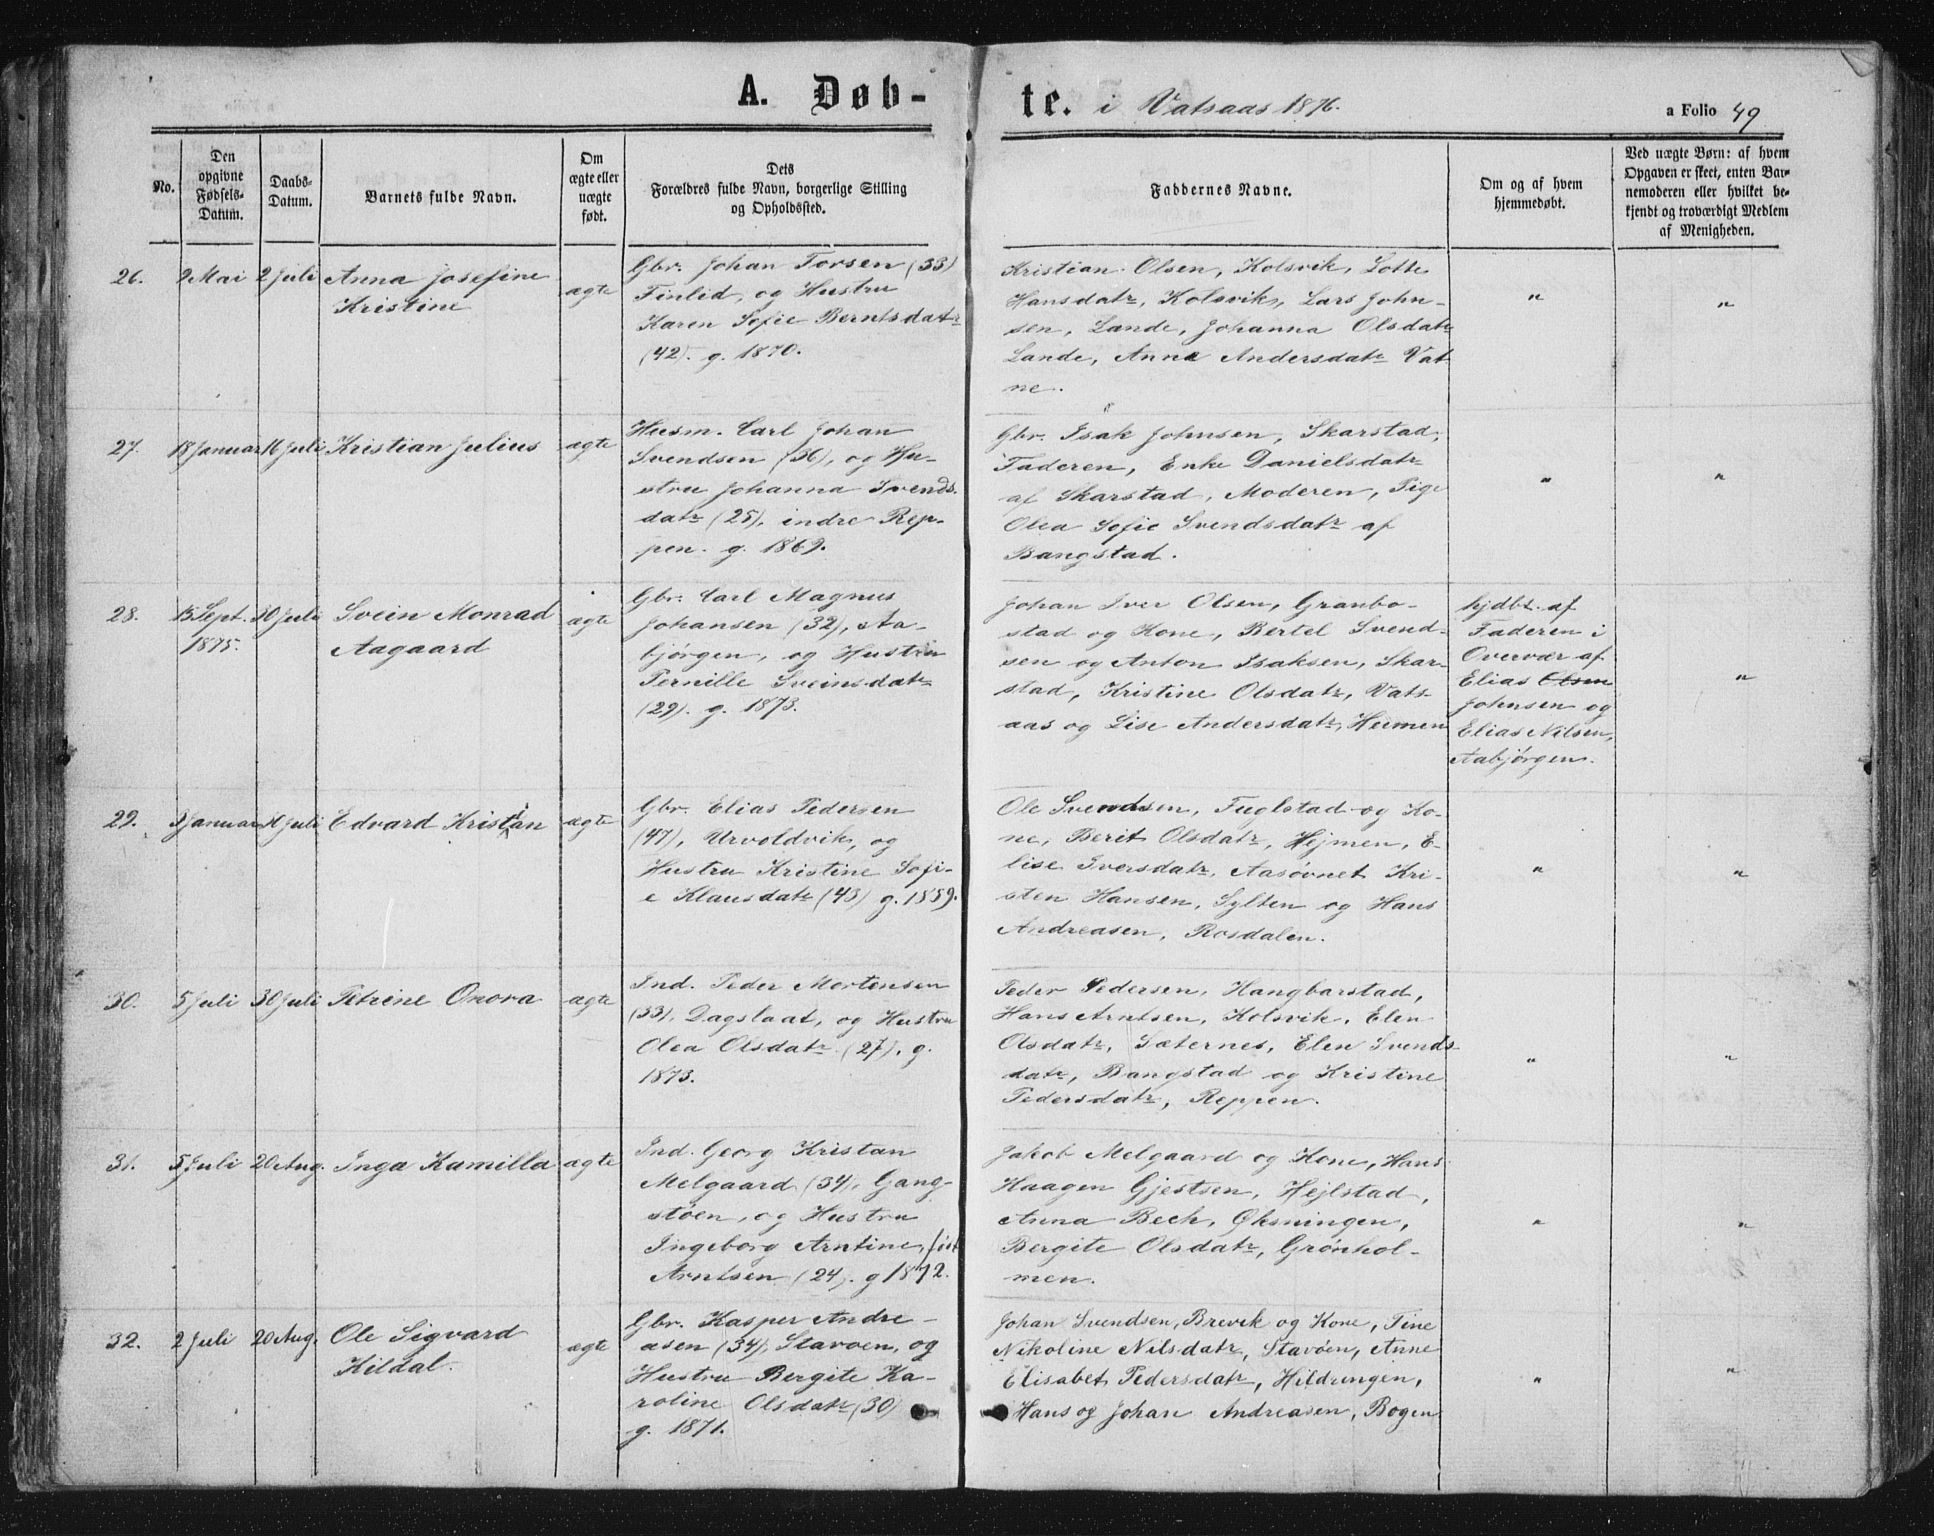 A. Døb-
te. i Vatsaas 1876.
a Folio 49
No.
Den
opgivne
Fødsels-
Datum.
Daabs-
Datum.
Barnets fulde Navn.
Om
ægte eller
uægte
født.
Dets
Forældres fulde Navn, borgerlige Stilling
og Opholdssted.
Faddernes Navne.
Om og af hvem
hjemmedøbt.
Ved uægte Børn: af hvem
Opgaven er skeet, enten Bar-
nemoderen eller hvilket be-
kjendt og troværdigt Medlem
af Menigheden.
26.
9 Mai
2 Juli
Anna Josefine
Kristine
ægte
Gbr. Johan Torsen (33)
Finlid, og Hustru
Karen Sofie Berntsdatr
(42). g. 1870.
Kristian Olsen, Kolsvik, Lotte
Hansdatr, Kolsvik, Lars John-
sen, Lande, Johanna Olsdatr
Lande, Anna Andersdatr Vat-
ne.
"
"
27.
18 Januar
16 Juli
Kristian Julius
ægte
Husm. Carl Johan
Svendsen (36), og Hu-
stru Johanna Svends-
datr (25), indre Rep-
pen. g. 1869.
Gbr. Isak Johnsen, Skarstad,
Faderen, Enke Danielsdatr
af Skarstad, Moderen, Pige
Olea Sofie Svendsdatr af
Bangstad.
"
"
28.
15 Sept.
1875.
30 Juli
Svein Monrad
Aagaard
ægte
Gbr. Carl Magnus
Johansen (32), Aa-
bjørgen, og Hustru
Pernille Sveinsdatr
(29). g. 1873.
Johan Iver Olsen, Granbo-
stad og Kone, Bertel Svend-
sen og Anton Isaksen, Skar-
stad, Kristine Olsdatr, Vats-
aas og Lise Andersdatr, Heimen
hjdbt. af
Faderen i
Overvær af
Elias Olsen
Johnsen og
Elias Nilsen,
Aabjørgen.
"
29.
Januar
Juli
Edvard Kristian
ægte
Gbr. Elias Pedersen
(47), Urvoldvik, og
Hustru Kristine Sofi-
e Klausdatr (43) g. 1859.
Ole Svendsen, Fuglstad og Ko-
ne, Berit Olsdatr, Hejmen, E-
lise Iversdatr, Aasøvnet Kri-
sten Hansen, Sylten og Hans
Andreasen, Rosdalen.
"
"
30.
5 Juli
30 Juli
Petrine Onora
ægte
Ind. Peder Mortensen
(33), Dagslaat, og Hustru
Olea Olsdatr (27), g.
1873.
Peder Pedersen, Hangbarstad,
Hans Arntsen, Kolsvik, Elen
Olsdatr, Sæternes, Elen Svends-
datr, Bangstad og Kristine
Pedersdatr, Reppen.
"
"
31.
5 Juli
20 Aug.
Inga Kamilla
ægte
Ind. Georg Kristan
Melgaard (34), Gang-
støen, og Hustru
Ingeborg Arntine, født
Arntsen (24). g 1872.
Jakob Melgaard og Kone, Hans
Haagen Gjestsen, Hejlstad,
Anna Bech, Øksningen,
Bergite Olsdatr, Grønhol-
men.
"
"
32.
2 Juli
20 Aug.
Ole Sigvard
Kildal.
ægte
Gbr. Kasper Andre-
asen (34), Stavøen, og
Hustru Bergite Ka-
roline Olsdatr (30)
g. 1871.
Johan Svendsen, Brevik og Kone, Tine
Nikoline Nilsdatr, Stavøen, Anne
Elisabet Pedersdatr, Hildringen,
Hans og Johan Andreasen, Bogen
"
"